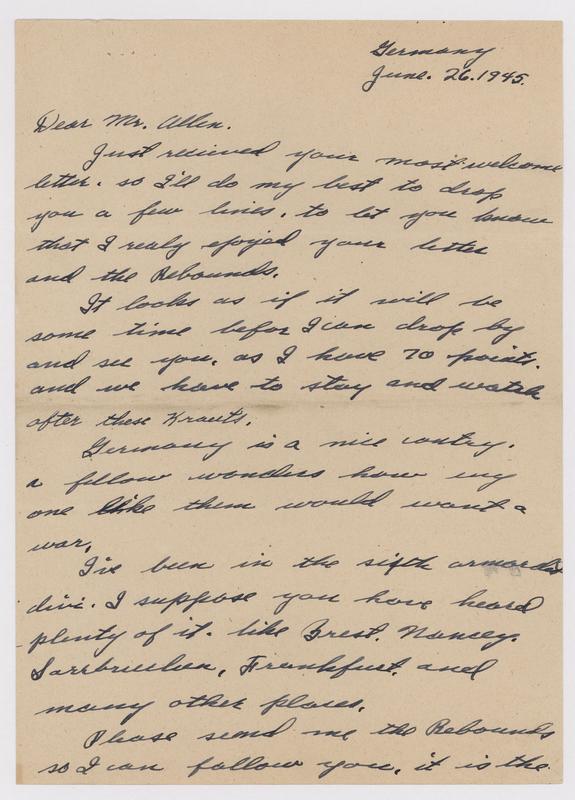 Germany
June. 26. 1945.
Dear Mr. Allen.
Just recieved your most welcome
letter. so I'll do my best to drop
you a few lines. to let you know
that I realy ejoyed your letter
and the Rebounds.
It looks as if it will be
some time befor I can drop by
and see you. as I have 70 points.
and we have to stay and watch
after these Krauts.
Germany is a nice contry.
a fellow wonders how eny
one like them would want a
war.
I've been in the sixth armored
divi. I suppose you have heard
plenty of it. like Brest. Nancey.
Sarrbrucken, Frankfurt. and
many other places.
Please send me the Rebounds
so I can follow you. it is the